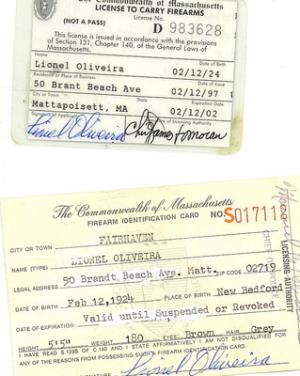 The Commonwealth of Massachusetts
LICENSE TO CARRY FIREARMS
(NOT A PASS)
License No.
D 983628
This license is issued in accordance with the provisions
of Section 131, Chapter 140, of the General Laws of
Massachusetts.
Lionel Oliveira 02/12/24
Residence or Place of Business
50 Brant Beach Ave 02/12/97
City or Town Expiration Date
Mattapoisett, MA 02/12/02
of Licensing Authority
Lionel Oliveira
The Commonwealth of Massachusetts
FIREARM IDENTIFICATION CARD NO. S017116
FAIRHAVEN
CITY OR TOWN
NAME (TYPE) LIONEL OLIVEIRA
LEGAL ADDRESS 50 Brandt Beach Ave. Matt. ZIP CODE 02719
DATE OF BIRTH Feb 12, 1924 PLACE OF BIRTH New Bedford
DATE OF EXPIRATION: Valid until Suspended or Revoked
HEIGHT WEIGHT 180 EYES Brown HAIR Grey
I HAVE READ S.129B OF C.140 AND I STATE AFFIRMATIVELY I AM NOT DISQUALIFIED
ANY OF THE REASONS FROM POSSESSING SUCH FIREARM IDENTIFICATION CARD.
Lionel Oliveira
LICENSING AUTHORITY